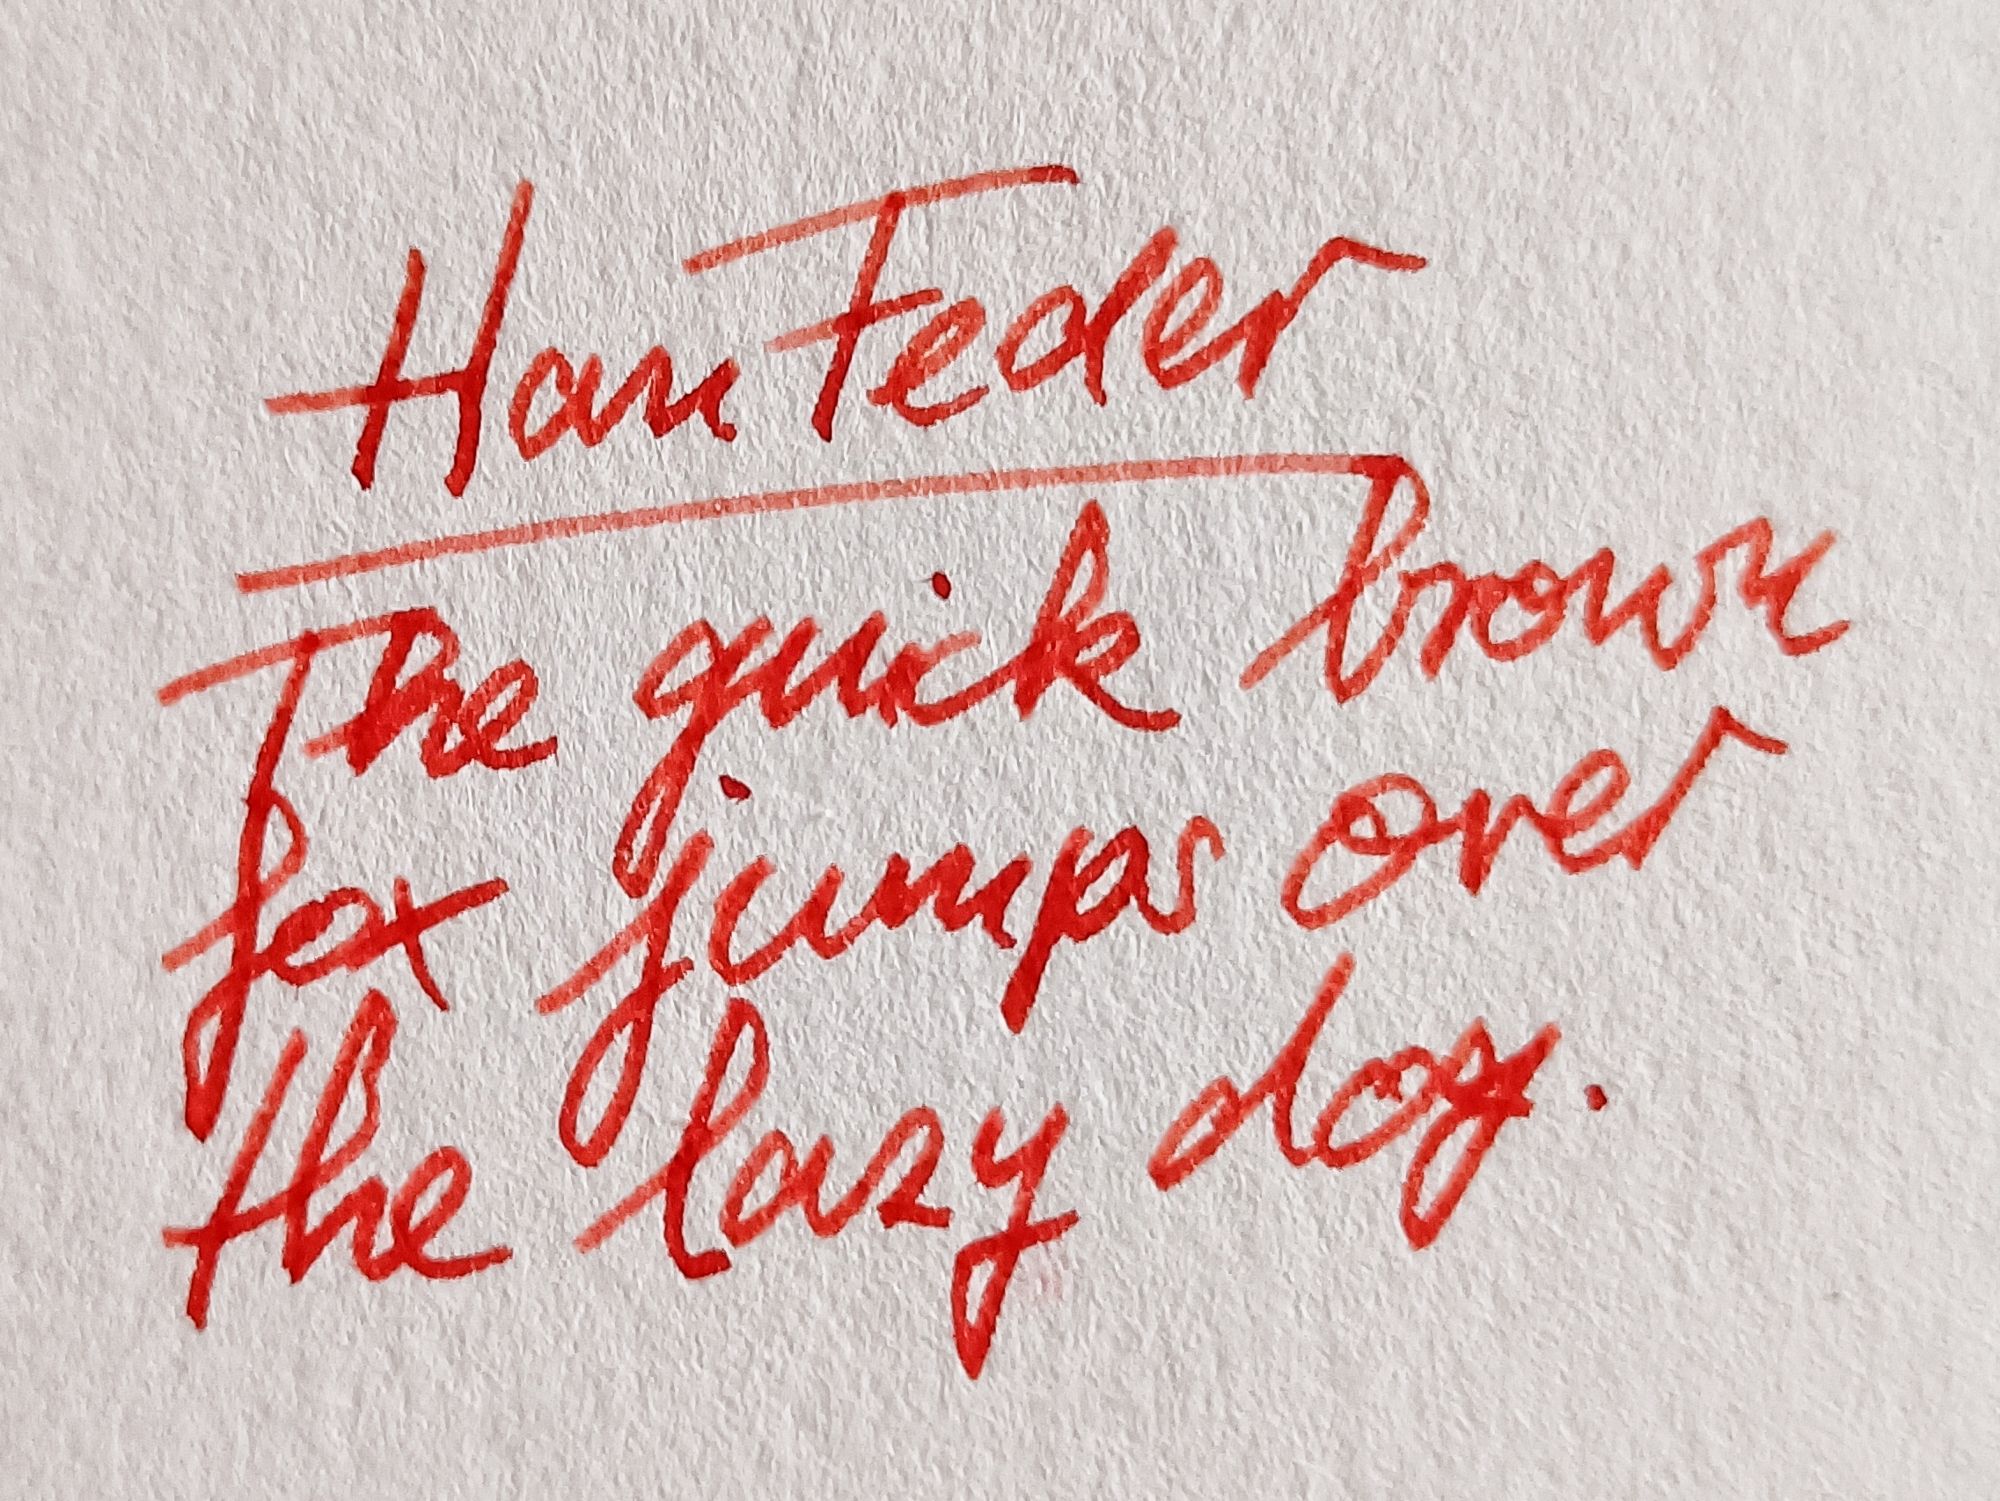 Han Feder
The quick brown
fox jumps over
the lazy dog.